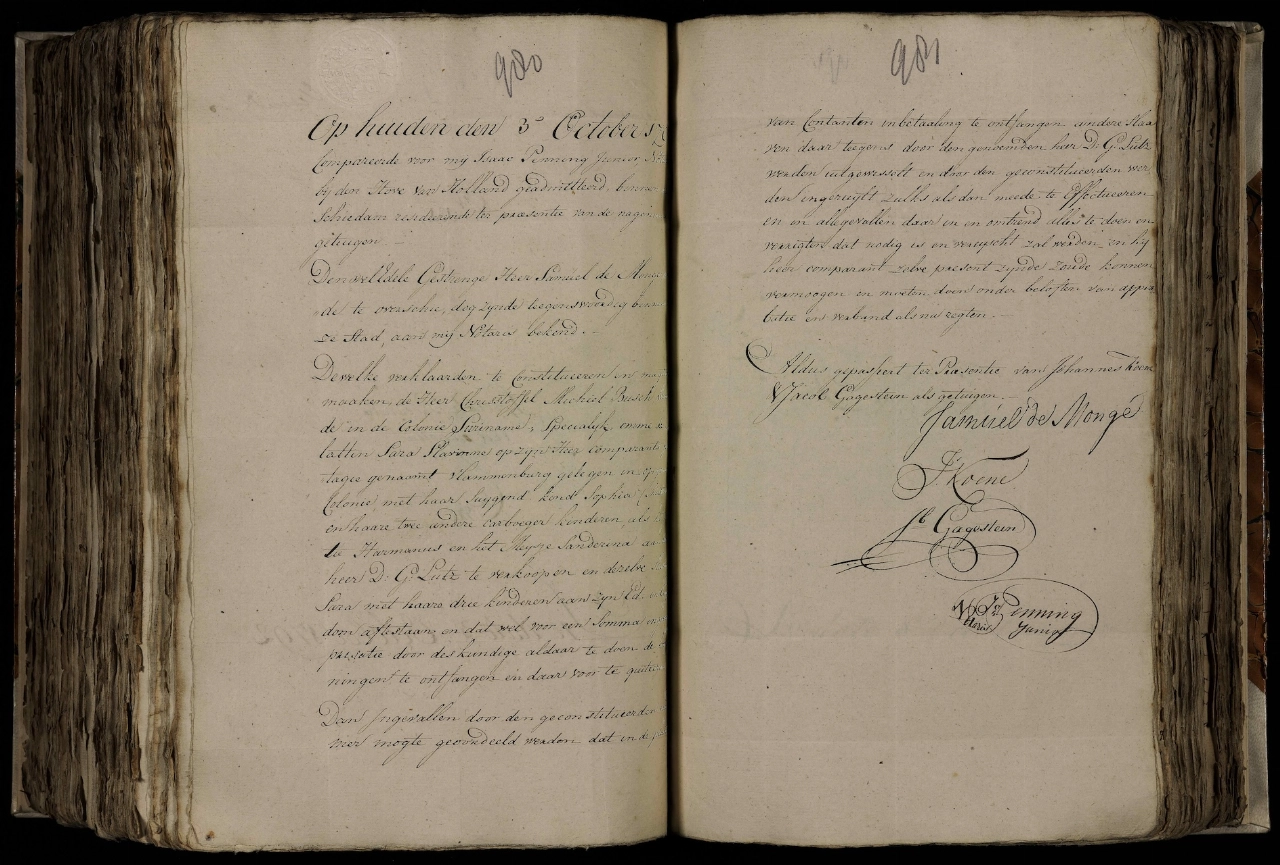 980
Op huiden den 3e October 17
Compareerde voor mij Isaac Penning Junior, Not
bij den Hove van Holland geadmitteerd, binne
Schiedam resideerende ter præsentie van de nagen
getuigen. –
Den wel Edele Gestrenge Heer Samuel de Mong
de te Overschie, dog zynde teegenswoordig binn
ze Stad, aan mij Notaris bekend. –
Dewelke verklaarden te Constitueren en ma
maaken, de Heer Christoffel Michiel Busch
de in de Colonie Suriname, Specialyk, omme
latten Sara Slavinne op zyn Heer Comparants
tagie genaamt Vlammenburg gelegen in op
Colonie, met haar Suygend kind Sophia
en haare twee andere Carboeger kinderen, als
te Harmanus en het Meysje Sanderina aa
heer D: G: Lutz te verkoopen en dezelve
Sara met haare drie kinderen aan zyn Ed. in
dom aftestaan, en dat wel voor een Somma
præsatie door deskundige aldaar te doen de
ningen te ontfangen en daar voor te quitee
Dan Ingevallen door den geconstitueerde
mer mogte geoordeeld werden dat in de p
981
van Contanten in betaaling te ontfangen andere Slaa
ven daar teegens door den genoemden heer D: G: Lutz
werden uitgewisselt en door den geconstitueerden wer
den ingeruylt zulks als dan meede te Effectueeren
en in alle gevallen daar en en omtrend alles te doen en
verrigten dat nodig is en vereyscht zal werden en hy
heer comparant zelve present zynde zoude konnen
vermoogen en moeten doen onder beloften van appro
batie en verband als na regten. –
Aldus gepasseert ter Præsentie van Johannes Koene
& Jacob Gagestein als getuigen. –
Samuel de Mongé
J: Koene
Jb Gagestein
Is Penning
Junior
Notaris